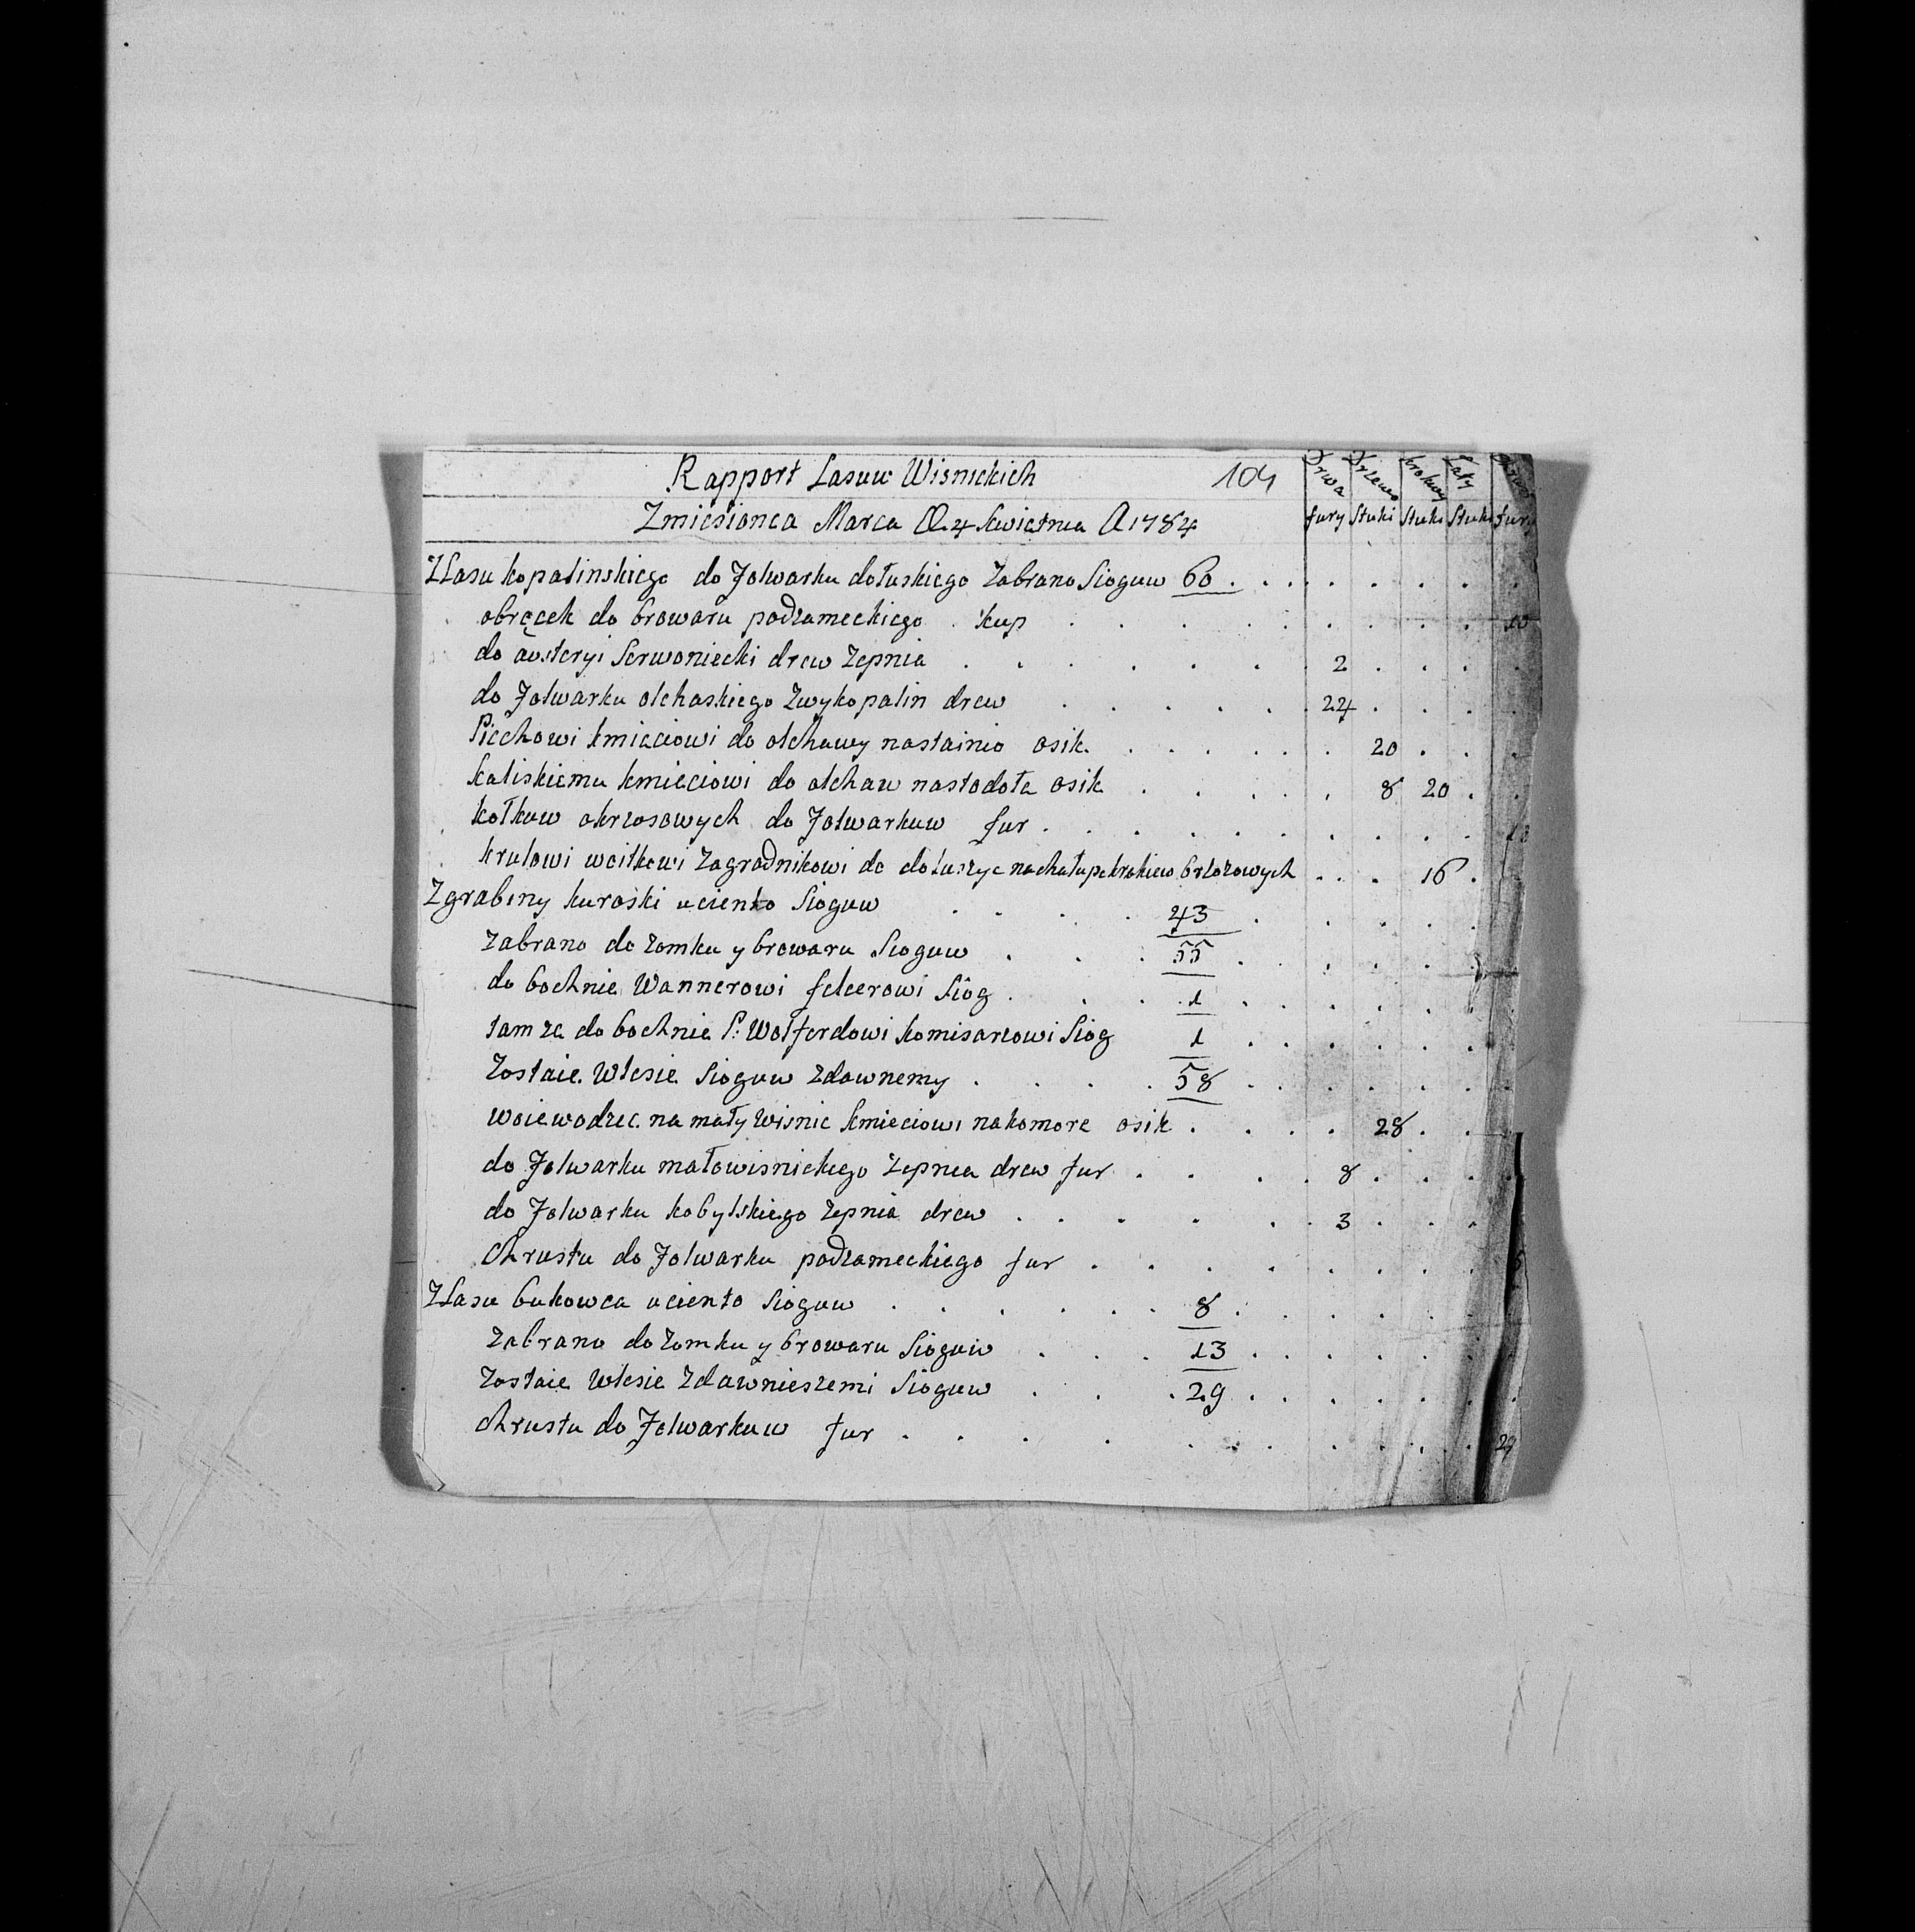 Rapport Lasuw Wisnickich 104
Zmiesionca Marca D 4 kwietnia A 1784
Drwa Drzewo krokwy Łaty Chrust
fury Stuki Stuki Stuki fury
ZLasu kopalinskiego do Folwarku dołuskiego Zabrano Sioguw 60
obręcek do browaru podzameckiego kup 10
do austeryi Serwoniecki drew Zepnia 2
do Folwarku olchaskiego Zwykopalin drew 24
Piechowi kmieciowi do olchawy nastainio osik 20
kaliskiemu kmieciowi do olchaw nastodoła osik 8 20
kołkuw okrzosowych do Folwarkuw fur
krulowi woitkowi Zagrodnikowi do dołuszyc nachałupe krokiew brzozowych 16
Zgrabiny kuroski ucienko Sioguw 43
Zabrano do Zomku y browaru Sioguw 55
do bochnie Wannerowi felcerowi Siog 1
tam ze do bochnie P: Wolferdowi komisarzowi Siog 1
Zostaie Wlesie Sioguw Zdawnemy 58
woiewodzec na mały Wisnic kmieciowi nakomore osik 28
do Folwarku małowisnickiego Zepnia drew fur 8
do Folwarku kobylskiego Zepnia drew 3
Chrustu do Folwarku podzameckiego fur
ZLasu bukowca uciento Sioguw 8
Zabrano do Zomku y browaru Sioguw 13
Zostaie Wlesie Zdawnieszemi Sioguw 29
Chrustu do Folwarkuw fur